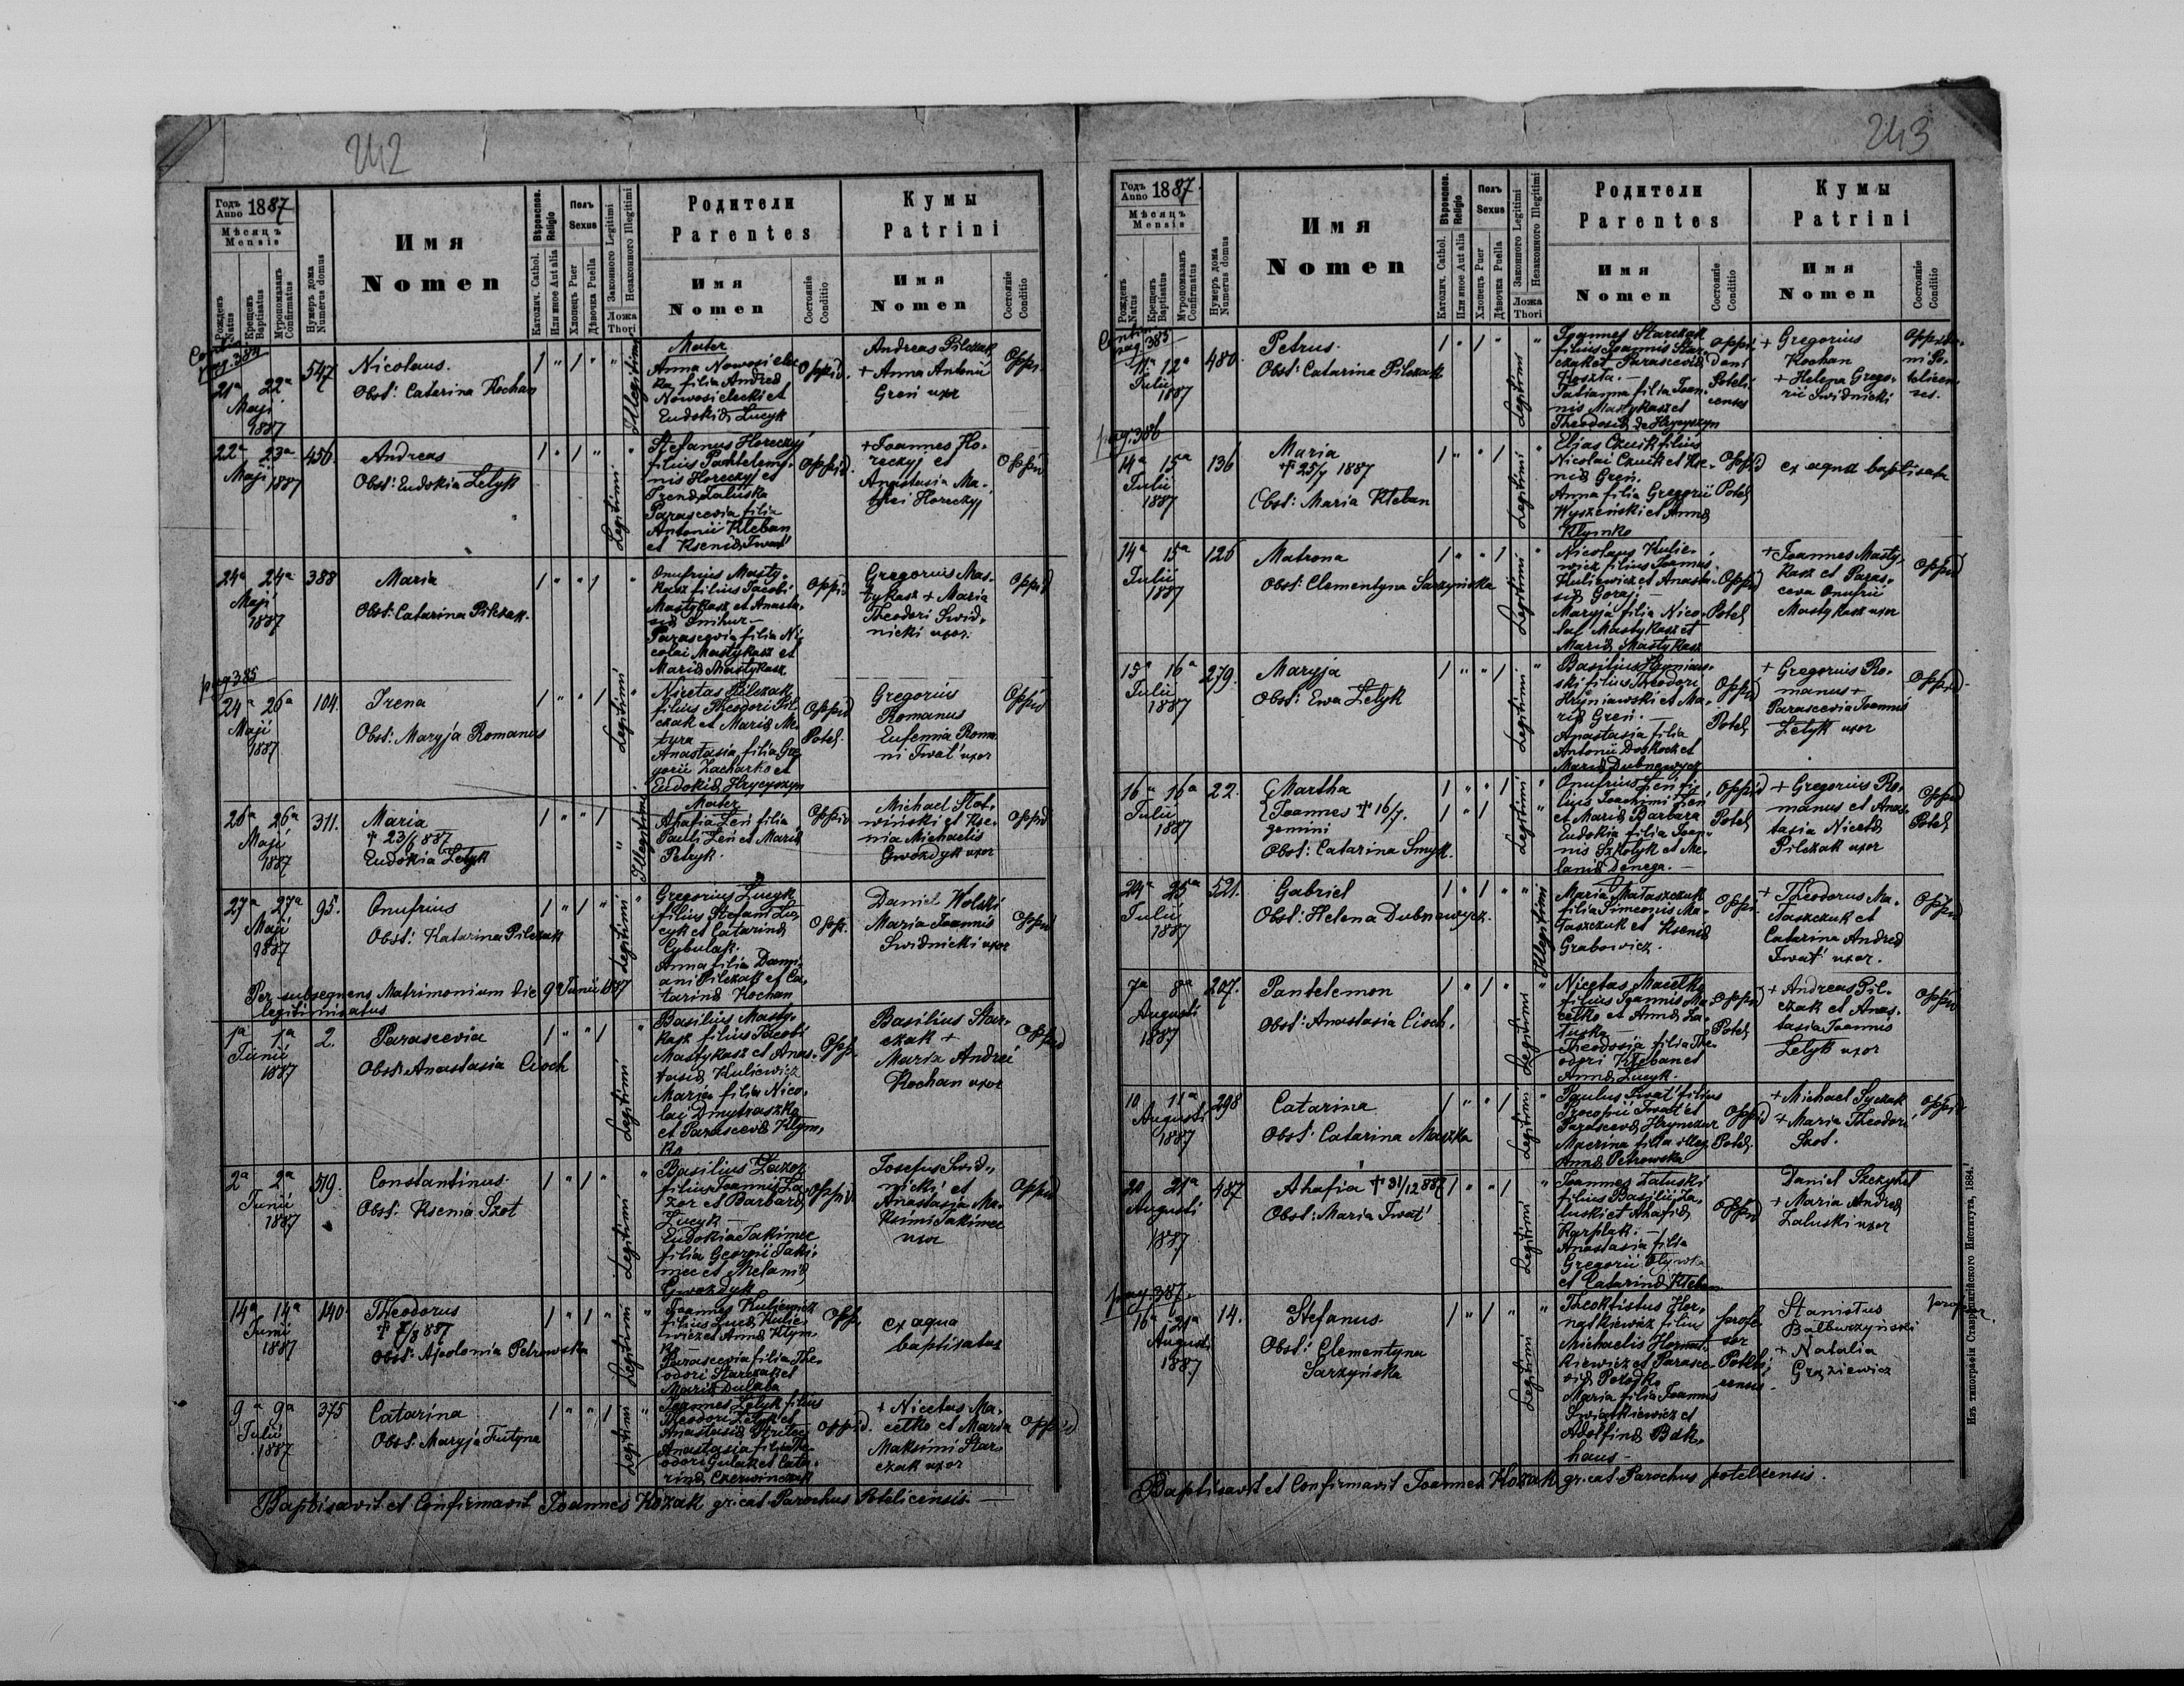 242
Годъ Anno 1887
Мѣсяцъ Mensis
Рожденъ Natus
Крещенъ Baptisatus
Муропомазанъ Confirmatus
Нумеръ дома Numerus domus
Имя Nomen
Вѣроисповѣд. Religio
Католич. Cathol.
Или иное Aut alia
Полъ Sexus
Хлопецъ Puer
Дѣвочка Puella
Законного Legitimi
Незаконного Illegitimi
Ложа Thori
Родители Parentes
Имя Nomen
Состояніе Conditio
Кумы Patrini
Имя Nomen
Состояніе Conditio
21ª 22ª Maji 1887
547
Nicolaus.
Obst: Catarina Kochan
Illegitimi
Mater
Anna Nowosielec-
ka filia Andreä
Nowosielecki et
Eudokiä Lucyk
Oppid.
Andreas Pilczak
+ Anna Antonii
Greń uxor
Oppi.
22ª 23ª Maji 1887
456
Andreas
Obst: Eudokia Lelyk
Legitimi
Stefanus Horeckyj
filius Pantelemo-
nis Horeckyj et
Irenä Zaluska
Parascevia filia
Antonii Kleban
et Kseniä Iwat'
Oppid.
+ Ioannes Ho-
reckyj et
Anastasia Ma-
thei Horeckyj
Oppid
24ª 24ª Maji 1887
388
Maria
Obst: Catarina Pilczak.
Onufrius Masty-
kasz filius Iacobi
Mastykasz et Anasta-
siä
Parascevia filia Ni-
colai Mastykasz et
Mariä Mastykasz
Oppid
Gregorius Mas-
tykasz + Maria
Theodori Swid-
nicki uxor.
Oppid
pag 385
24ª 26ª Maji 1887
104.
Irena
Obst: Maryja Romanus
Legitimi
Nicetas Pilczak
filius Theodori Pil-
czak et Mariä
Anastasia filia Gre-
gorii Zacharko et
Eudokiä Hrycyszyn
Oppid
Potel.
Gregorius
Romanus
Eufemia Roma-
ni Iwat' uxor
Oppid
26ª 26ª Maji 1887
311.
Maria
† 23/6 887
Eudokia Lelyk
Illegitimi
Mater
Ahafia Leń filia
Pauli Leń et Mariä
Petryk.
Oppid
Michael Slot-
wiński et Kse-
nia Michaelis
Gwozdyk uxor
Oppid
27ª 27ª Maji 1887
95.
Onufrius
Obst: Katarina Pilczak
Legitimi
Gregorius Lucyk
filius Stefani Lu-
cyk et Catarinä
Cybulak.
Anna filia Dami-
ani Pilczak et Ca-
tarinä Kochan
Opp.
Daniel Wolski
Maria Ioannis
Swidnicki uxor
Oppid
Per subsequens Matrimonium die 9ª Iunii 1887
legitimisatus
1ª 1ª Iunii 1887
2.
Parascevia
Obst: Anastasia Cioch
Legitimi
Basilius Masty-
kasz filius Iacobi
Mastykasz et Anas-
tasiä Kuliewicz
Maria filia Nico-
lai Dmytraszko
et Parasceviä Klym-
ko
Opp.
Basilius Star-
czak +
Maria Andrei
Kochan uxor
Oppid
2ª 2ª Iunii 1887
519.
Constantinus.
Obst. Ksenia Szot
Legitimi
Basilius Lazor
filius Ioannis La-
zor et Barbarä
Lucyk —
Eudokia Iakimec
filia Georgii Iaki-
mec et Melaniä
Gwozdyk
Oppid.
Iosefus Swid-
nicki et
Anastasia Ma-
ksimi Iakimec
uxor
Oppid
14ª 14ª Iunii 1887
140
Theodorus
† 7/8 887
Obst: Apolonia Petrowska
Legitimi
Ioannes Kuliewicz
filius Lucä Kulie-
wicz et Annä Klym-
ko
Parascevia filia The-
odori Starczak et
Mariä Dulaba
Opp.
ex aqua
baptisatus
9ª 9ª Iulii 1887
375
Catarina
Obst: Maryja Futyna
Legitimi
Ioannes Lelyk filius
Theodori Lelyk et
Anastasiä
Anastasia filia The-
odori Gulak et Cata-
rinä Czerwinczak
Oppid.
+ Nicetas Ma-
celko et Maria
Maksimi Star-
czak uxor
Oppid
Baptisavit et Confirmavit Ioannes Kozak gr. cat. Parochus Potelicensis. —
243
Годъ Anno 1887.
Мѣсяцъ Mensis
Рожденъ Natus
Крещенъ Baptisatus
Муропомазанъ Confirmatus
Нумеръ дома Numerus domus
Имя Nomen
Вѣроисповѣд. Religio
Католич. Cathol.
Или иное Aut alia
Полъ Sexus
Хлопецъ Puer
Дѣвочка Puella
Законного Legitimi
Незаконного Illegitimi
Ложа Thori
Родители Parentes
Имя Nomen
Состояніе Conditio
Кумы Patrini
Имя Nomen
Состояніе Conditio
pag 385
11ª 12ª Iulii 1887
480.
Petrus.
Obst: Catarina Pilczak
Legitimi
Ioannes Starczak
filius Ioannis Star-
czak et Parasceviä
Koszta. —
Tatianna filia Ioan-
nis Mastykasz et
Theodosiä de Hrycyszyn
Oppi-
dani
Poteli-
censes
+ Gregorius
Kochan
+ Helena Grego-
rii Swidnicki
Oppida-
ni Po-
telicen-
ses.
pag. 386
14ª 15ª Iulii 1887
136
Maria
† 25/7 1887
Obst: Maria Kleban
Legitimi
Elias Czuik filius
Nicolai Czuik et Kse-
niä Greń.
Anna filia Gregorii
Wyszeński et Annä
Klymko
Oppid
Potel
ex aqua baptisata
14ª 15ª Iulii 1887
126
Matrona
Obst: Clementyna Sarzyńska
Legitimi
Nicolaus Kulie-
wicz filius Ioannis
Kuliewicz et Anasta-
siä Goraj. —
Maryja filia Nico-
lai Mastykasz et
Mariä Mastykasz
Oppid
Potel
+ Ioannes Masty-
kasz et Paras-
ceva Onufrii
Mastykasz uxor
Oppid
15ª 16ª Iulii 1887
279.
Maryja
Obst: Ewa Lelyk
Legitimi
Basilius Hryniaw-
ski filius Theodori
Hryniawski et Ma-
riä Greń. —
Anastasia filia
Antonii Doskocz et
Mariä Dubnewycz
Oppid
Potel
+ Gregorius Ro-
manus +
Parascevia Ioannis
Lelyk uxor
Oppid
16ª 16ª Iulii 1887
22.
Martha
Ioannes † 16/7.
gemini
Obst: Catarina Smyk.
Legitimi
Onufrius Leń fi-
lius Ioachimi Leń
et Mariä Barbara
Eudokia filia Ioan-
nis Szkolyk et Me-
laniä Denega. —
Oppid
Potel
+ Gregorius Ro-
manus et Anas-
tasia Nicetä
Pilczak uxor
Oppid
Potel
24ª 25ª Iulii 1887
521.
Gabriel
Obst: Helena Dubnewycz.
Illegitimi
Maria Mataszczuk
filia Simeonis Ma-
taszczuk et Kseniä
Grabowicz.
Oppi.
+ Theodorus Ma-
taszczuk et
Catarina Andreä
Iwat' uxor.
Oppid
7ª 8ª Augusti 1887
207.
Pantelemon
Obst: Anastasia Cioch.
Legitimi
Nicetas Macelko
filius Ioannis Ma-
celko et Annä Za-
luska —
Theodosia filia The-
odori Kleban et
Annä Lucyk.
Oppid
Potel
+ Andreas Pil-
czak et Anas-
tasia Ioannis
Lelyk uxor
Oppid
10 11ª Augusti 1887
298
Catarina
Obst: Catarina Maszka
Legitimi
Paulus Iwat' filius
Procopii Iwat' et
Parasceviä Hrynczur
Macrina filia illeg
Annä Petrowska
Oppid
Potel.
+ Michael Syczak
+ Maria Theodori
Szot.
Oppid
20 21ª Augusti 1887
487
Ahafia † 31/12 887
Obst: Maria Iwat'
Legitimi
Ioannes Zaluski
filius Basilii Za-
luski et Ahafiä
Karplak. —
Anastasia filia
Gregorii
et Catarinä Kleban
Oppid
Daniel Szczyhel
+ Maria Andreä
Zaluski uxor
pag. 387.
16ª 21ª Augusti 1887
14.
Stefanus.
Obst: Clementyna
Sarzyńska
Legitimi
Theoktistus Hor-
natkiewicz filius
Michaelis Hornat-
kiewicz et Parasce-
viä
Maria filia Ioannis
Swiątkiewicz et
Adolfinä Bak-
haus —
profes-
sor
Poteli-
censis.
Stanislaus
Balburzyński
+ Natalia
Gręziewicz
Baptisavit et Confirmavit Ioannes Kozak gr. cat. Parochus potelicensis.
Изъ типографіи Ставропигійского Института, 1884.